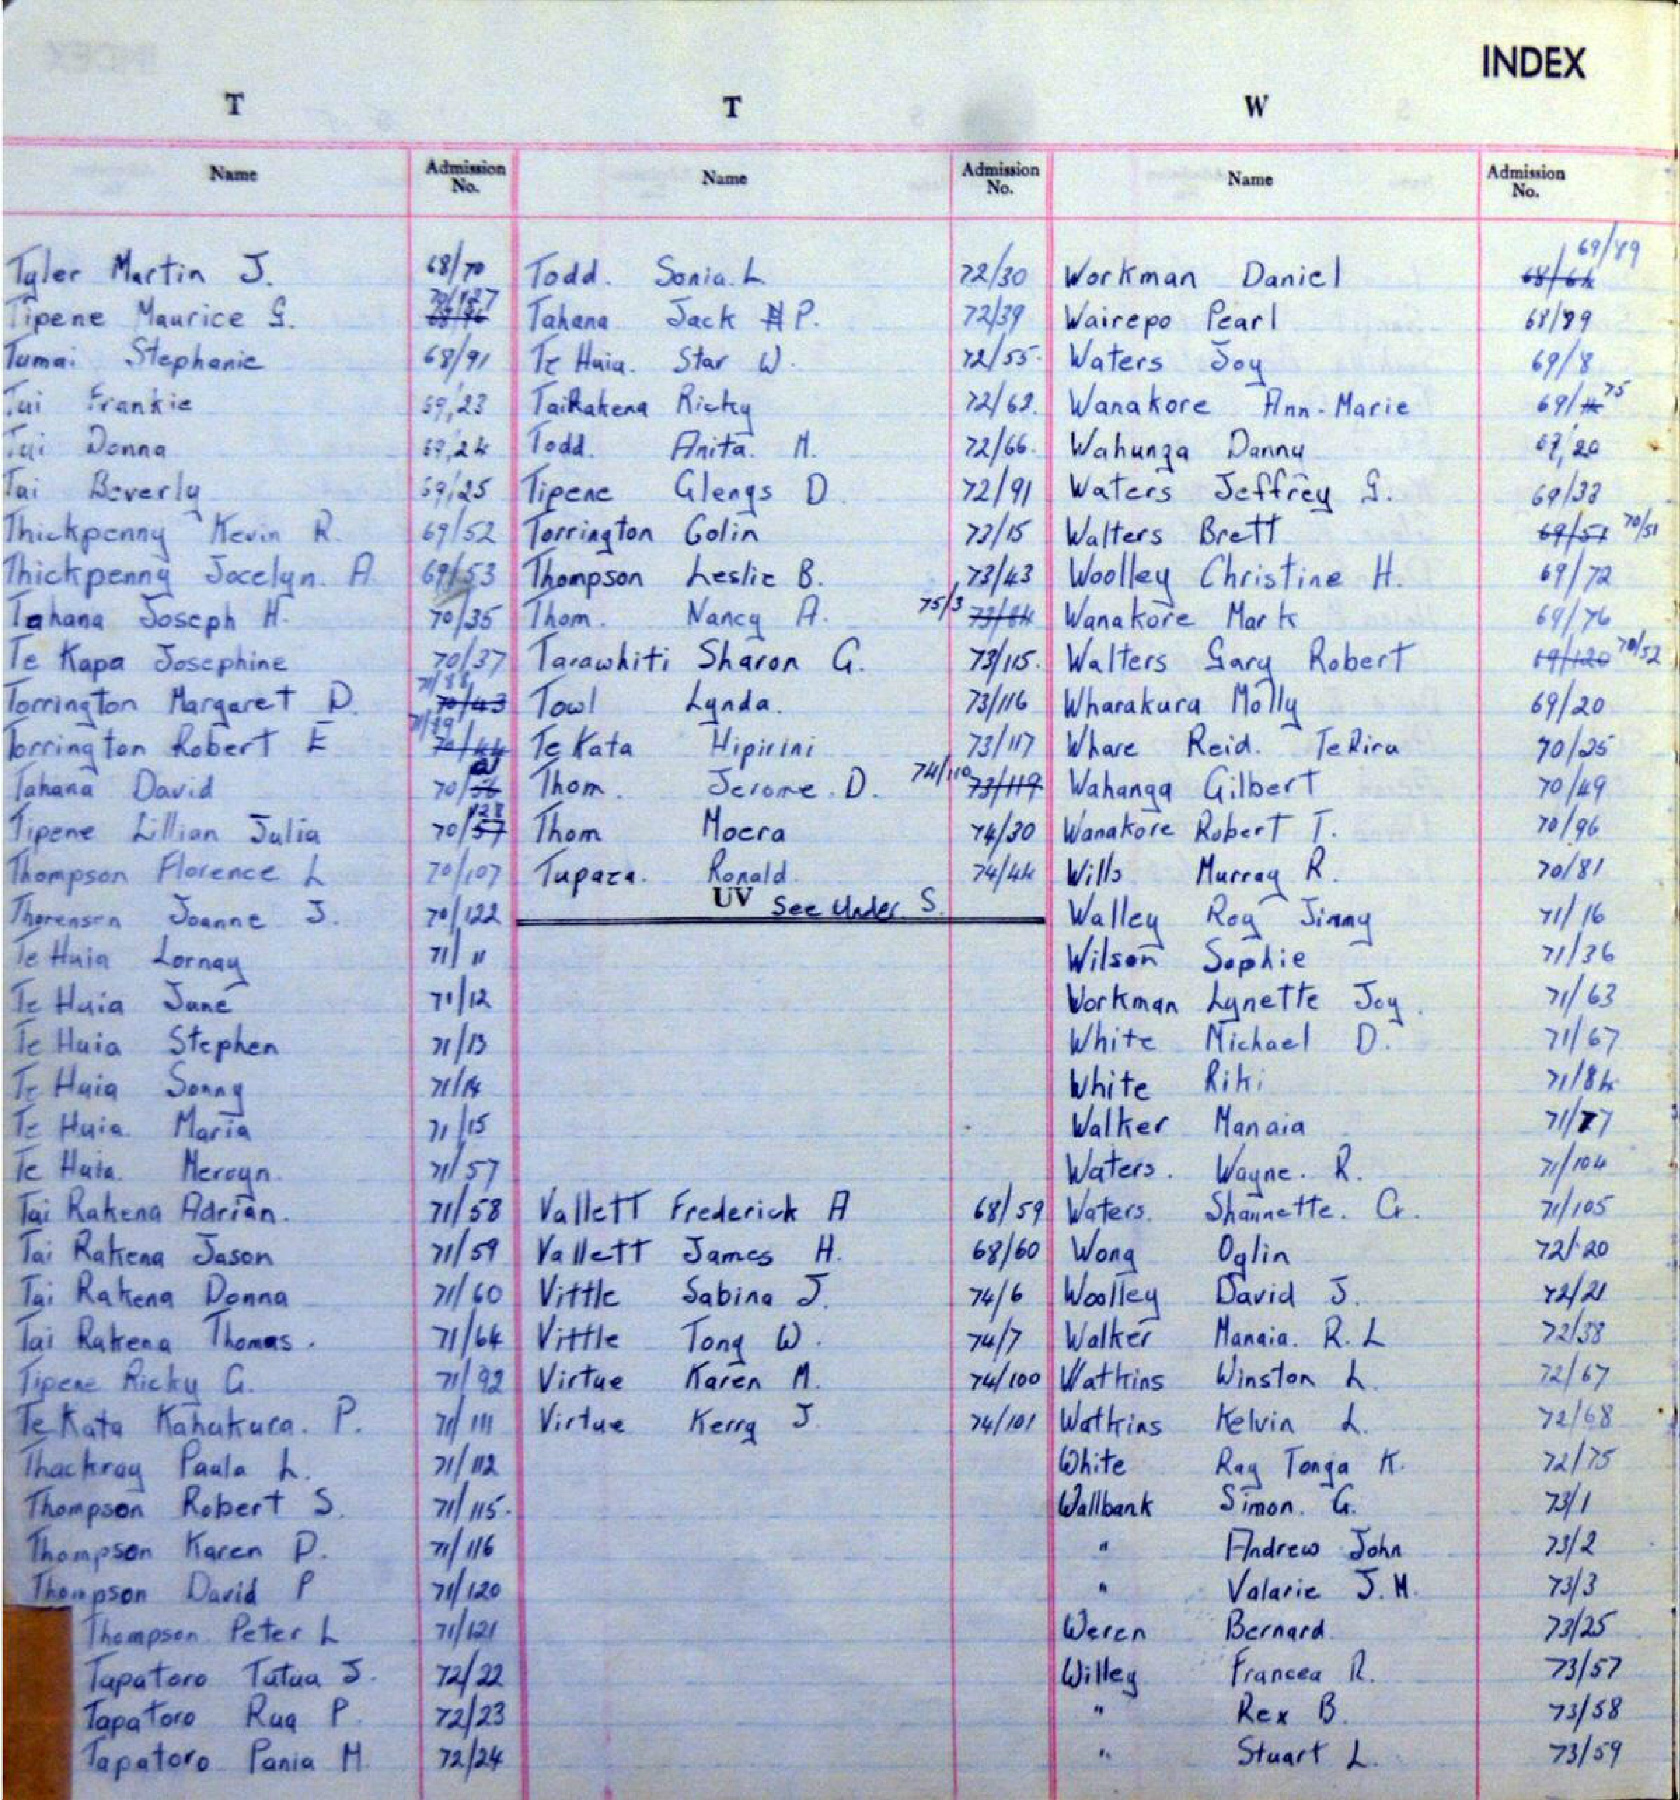 INDEX
T
Name Admission No.
Tyler Martin J. 68/70
Tipene Maurice G. 70/127
Tumai Stephanie 68/91
Tai Frankie 69/23
Tai Donna 69/24
Tai Beverly 69/25
Thickpenny Kevin R. 69/52
Thickpenny Jocelyn. A 69/53
Tahana Joseph H. 70/35
Te Kapa Josephine 70/37
Torrington Margaret D. 71/88 70/43
Torrington Robert E 71/89 70/44
Tahana David 70/
Tipene Lillian Julia 70/128 57
Thompson Florence L 70/107
Thorensen Joanne J. 70/122
Te Huia Lornay 71/11
Te Huia Jane 71/12
Te Huia Stephen 71/13
Te Huia Sonny 71/14
Te Huia. Maria 71/15
Te Huia. Mervyn. 71/57
Tai Rakena Adrian. 71/58
Tai Rakena Jason 71/59
Tai Rakena Donna 71/60
Tai Rakena Thomas. 71/64
Tipene Ricky G. 71/92
Te Kata Kahukura. P. 71/111
Thackray Paula L. 71/112
Thompson Robert S. 71/115.
Thompson Karen D. 71/116
Thompson David P 71/120
Thompson. Peter L 71/121
Tapatoro Tutua J. 72/22
Tapatoro Rua P. 72/23
Tapatoro Pania M. 72/24
T
Name Admission No.
Todd. Sonia. L 72/30
Tahana Jack P. 72/39
Te Huia. Star W. 72/55.
TaiRakena Ricky 72/62.
Todd. Anita. M. 72/66.
Tipene Glenys D 72/91
Torrington Colin 73/15
Thompson Leslie B. 73/43
Thom. Nancy A. 75/3 73/84
Tarawhiti Sharon G. 73/115.
Towl Lynda. 73/116
Te Kata Hipirini 73/117
Thom. Jerome. D. 74/110 73/119
Thom Moera 74/30
Tupaea. Ronald. 74/44
UV See Under S.
Vallett Frederick A 68/59
Vallett James H. 68/60
Vittle Sabina J. 74/6
Vittle Tony W. 74/7
Virtue Karen M. 74/100
Virtue Kerry J. 74/101
W
Name Admission No.
Workman Daniel 69/89 68/64
Wairepo Pearl 68/89
Waters Joy 69/8
Wanakore Ann-Marie 69/75
Wahunga Danny 69/20
Waters Jeffrey G. 69/33
Walters Brett 69/51 70/51
Woolley Christine H. 69/72
Wanakore Mark 69/76
Walters Gary Robert 69/120 70/52
Wharakura Molly 69/20
Whare Reid. TeRira 70/25
Wahanga Gilbert 70/49
Wanakore Robert T. 70/96
Wills Murray R. 70/81
Walley Roy Jimmy 71/16
Wilson Sophie 71/36
Workman Lynette Joy. 71/63
White Michael D. 71/67
White Riki 71/84
Walker Manaia 71/77
Waters. Wayne. R. 71/104
Waters. Shannette. G. 71/105
Wong Oglin 72/20
Woolley David J. 72/21
Walker Manaia. R. L 72/38
Watkins Winston L. 72/67
Watkins Kelvin L. 72/68
White Ray Tonga K. 72/75
Wallbank Simon. G. 73/1
" Andrew John 73/2
" Valarie J.M. 73/3
Weren Bernard. 73/25
Willey Frances R. 73/57
" Rex B. 73/58
" Stuart L. 73/59